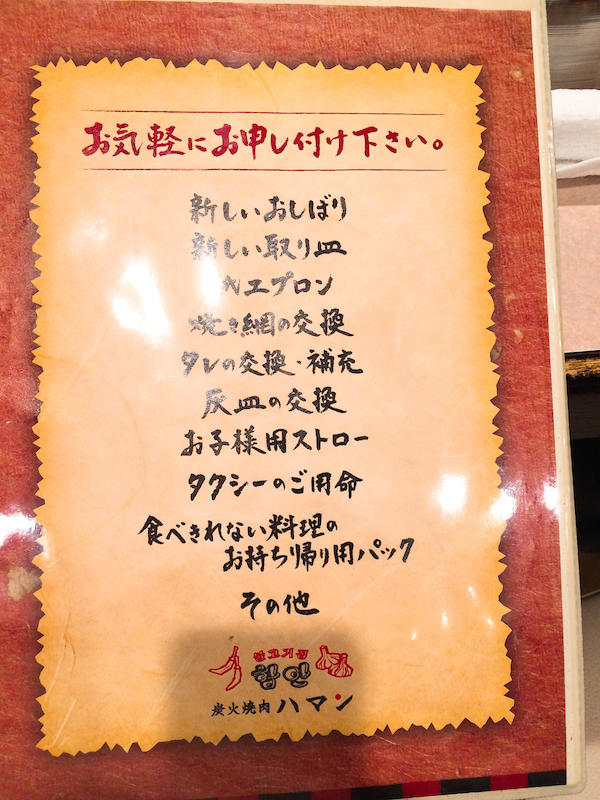 お気軽にお申し付け下さい。
新しいおしぼり
新しい取り皿
紙エプロン
焼き網の交換
タレの交換・補充
灰皿の交換
お子様用ストロー
タクシーのご用命
食べきれない料理の
お持ち帰り用パック
その他
불고기집
함안
炭火焼肉 ハマン